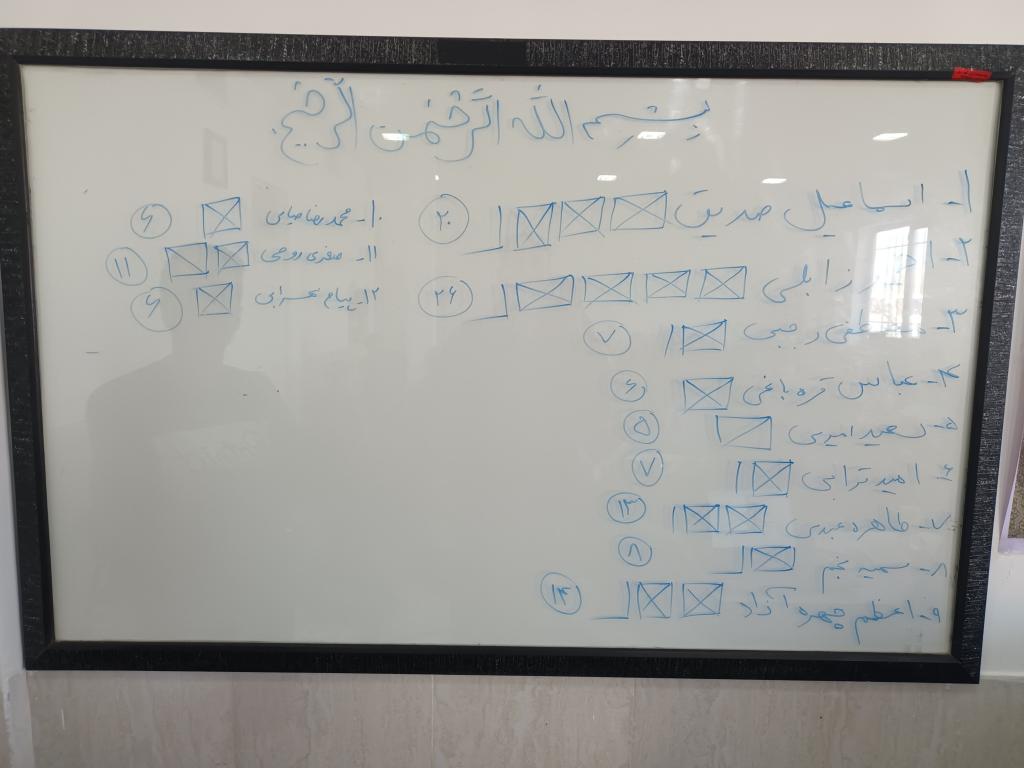 بِسْمِ اللّٰه الرَّحْمٰنِ الرَّحیم
۱- اسماعیل صدیق ۲۰
۲- رزا بلی ۲۶
۳- مصطفی رجبی ۷
۴- عباس قره باغی ۶
۵- سعید امیری ۵
۶- امید ترابی ۷
۷- طاهره عبدی ۱۳
۸- سمیه نجم ۸
۹- اعظم چهره آزاد ۱۴
۱۰- محمدرضا ۶
۱۱- صفری روحی ۱۱
۱۲- پیام ۶